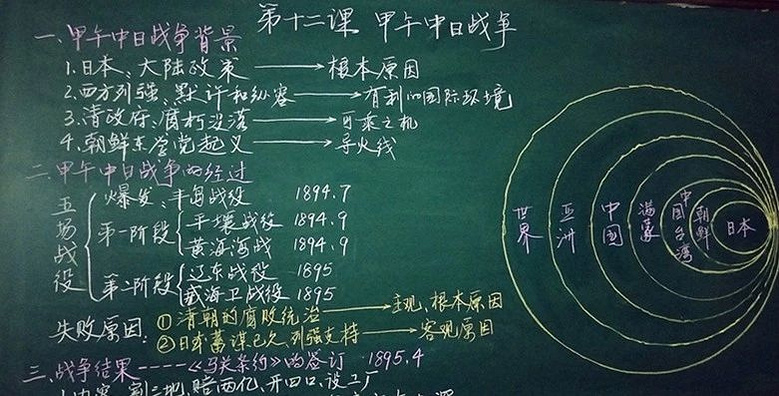 第十二课 甲午中日战争
一、甲午中日战争背景
1.日本、大陆政策 → 根本原因
2.西方列强、默许和纵容 → 有利的国际环境
3.清政府、腐朽没落 → 可乘之机
4.朝鲜东学党起义 → 导火线
二、甲午中日战争的经过
五场战役
爆发：丰岛战役 1894.7
第一阶段
平壤战役 1894.9
黄海海战 1894.9
第二阶段
辽东战役 1895
威海卫战役 1895
失败原因：①清朝的腐败统治 → 主观、根本原因
②日本蓄谋已久,列强支持 → 客观原因
三、战争结果----《马关条约》的签订 1895.4
割三地、赔两亿、开四口、设工厂
世界
亚洲
中国
满蒙
中国台湾
朝鲜
日本